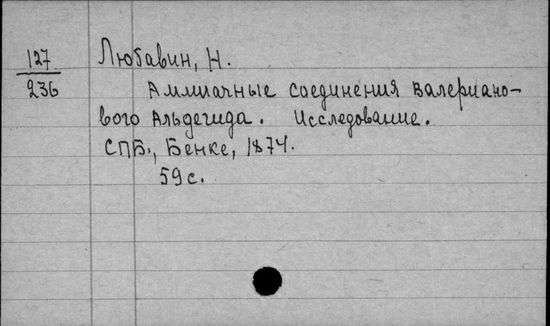 127
236
Любавин, Н.
Аммиачные соединения валериано-
вого Альдегида. Исследование.
СПБ., Бенке, 1874.
59 с.